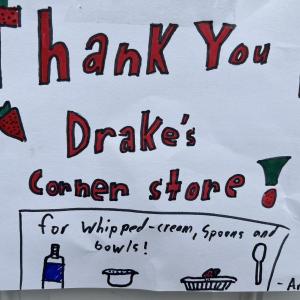 Thank You
Drake's
Corner store!
for whipped-cream, Spoons and
bowls!